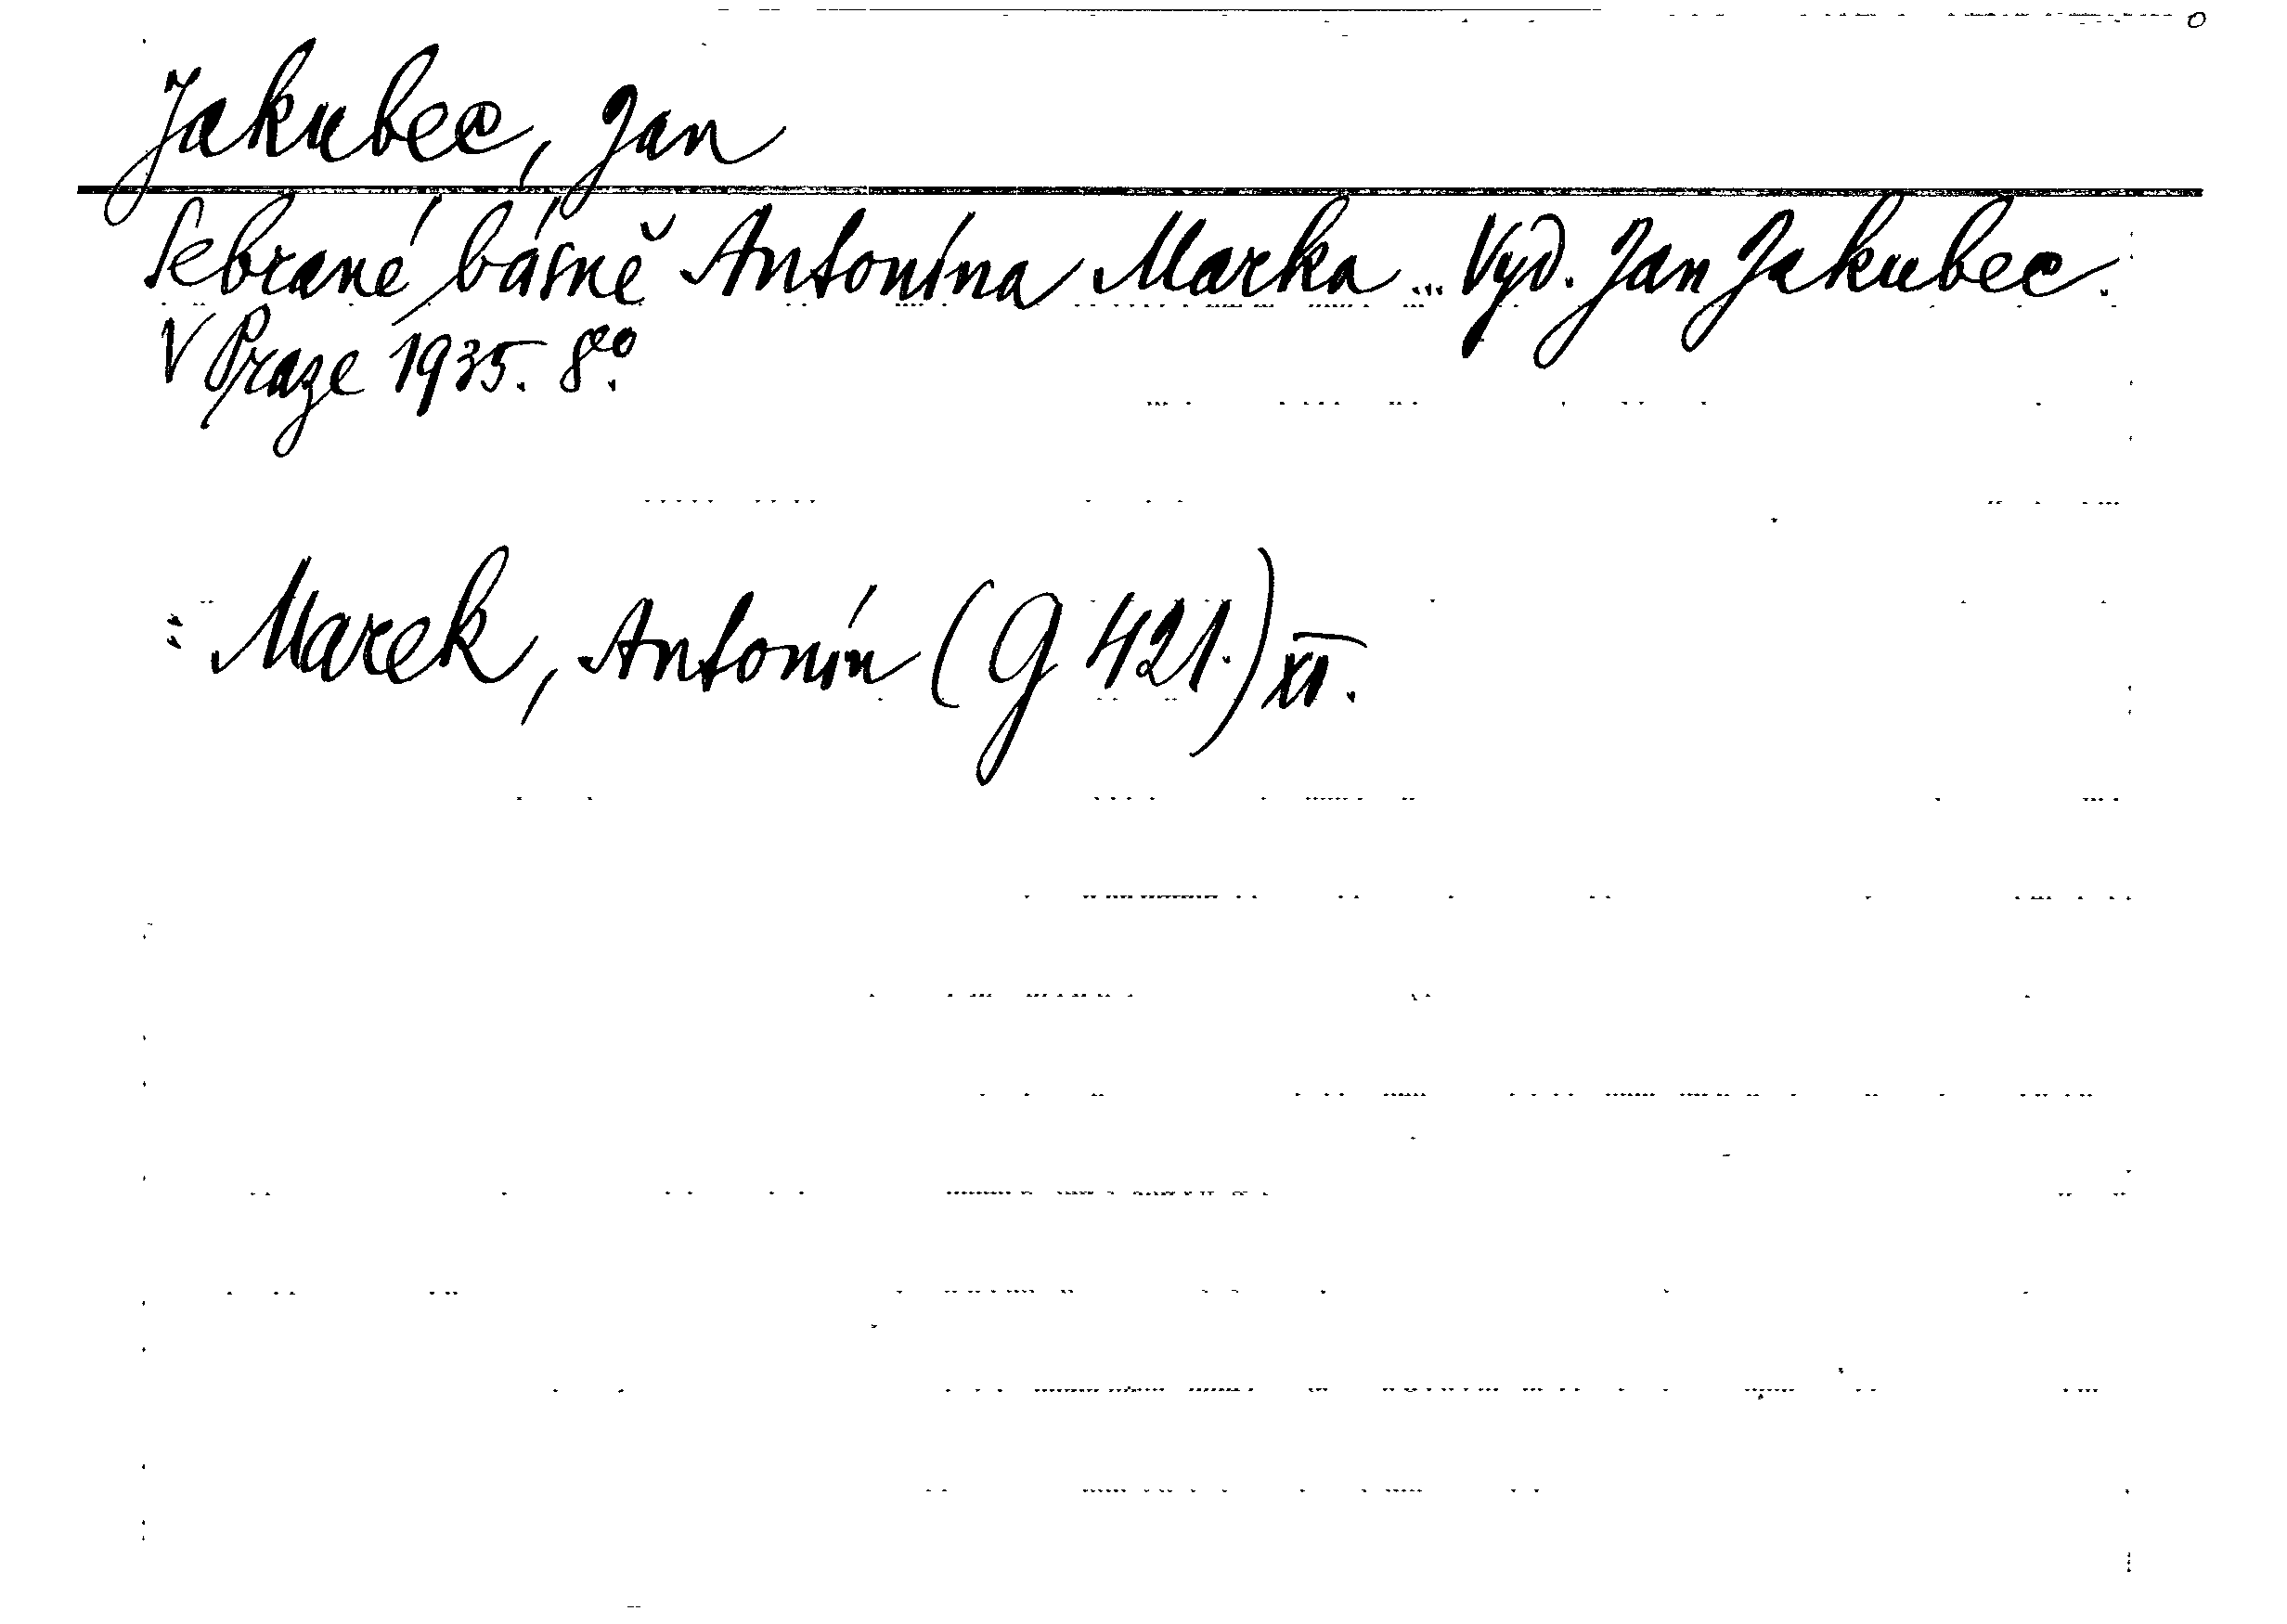 Jakubec, Jan
Sebrané básně Antonína Marka ... Vyd. Jan Jakubec.
V Praze 1935. 8°.
= Marek, Antonín (G 421.) XI.